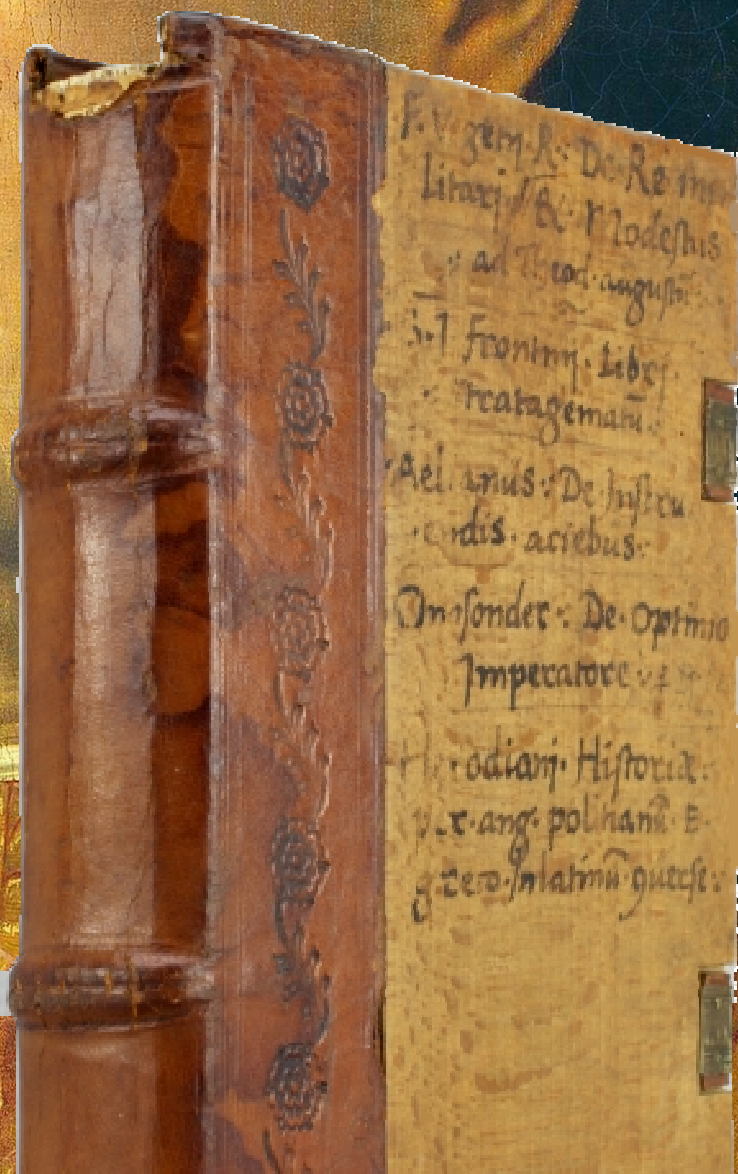 F. V getij. R: De Re mi
litari & Modestus
ad Theod. augustū
S. I frontinij. Libri
tratagematū:
Aelianus: De Instru
endis. aciebus:
Onosonder: De. Optimo
Imperatore
Herodiani. Historiæ:
per. ang. politianū. E.
greco. Inlatinū. 9uerse: